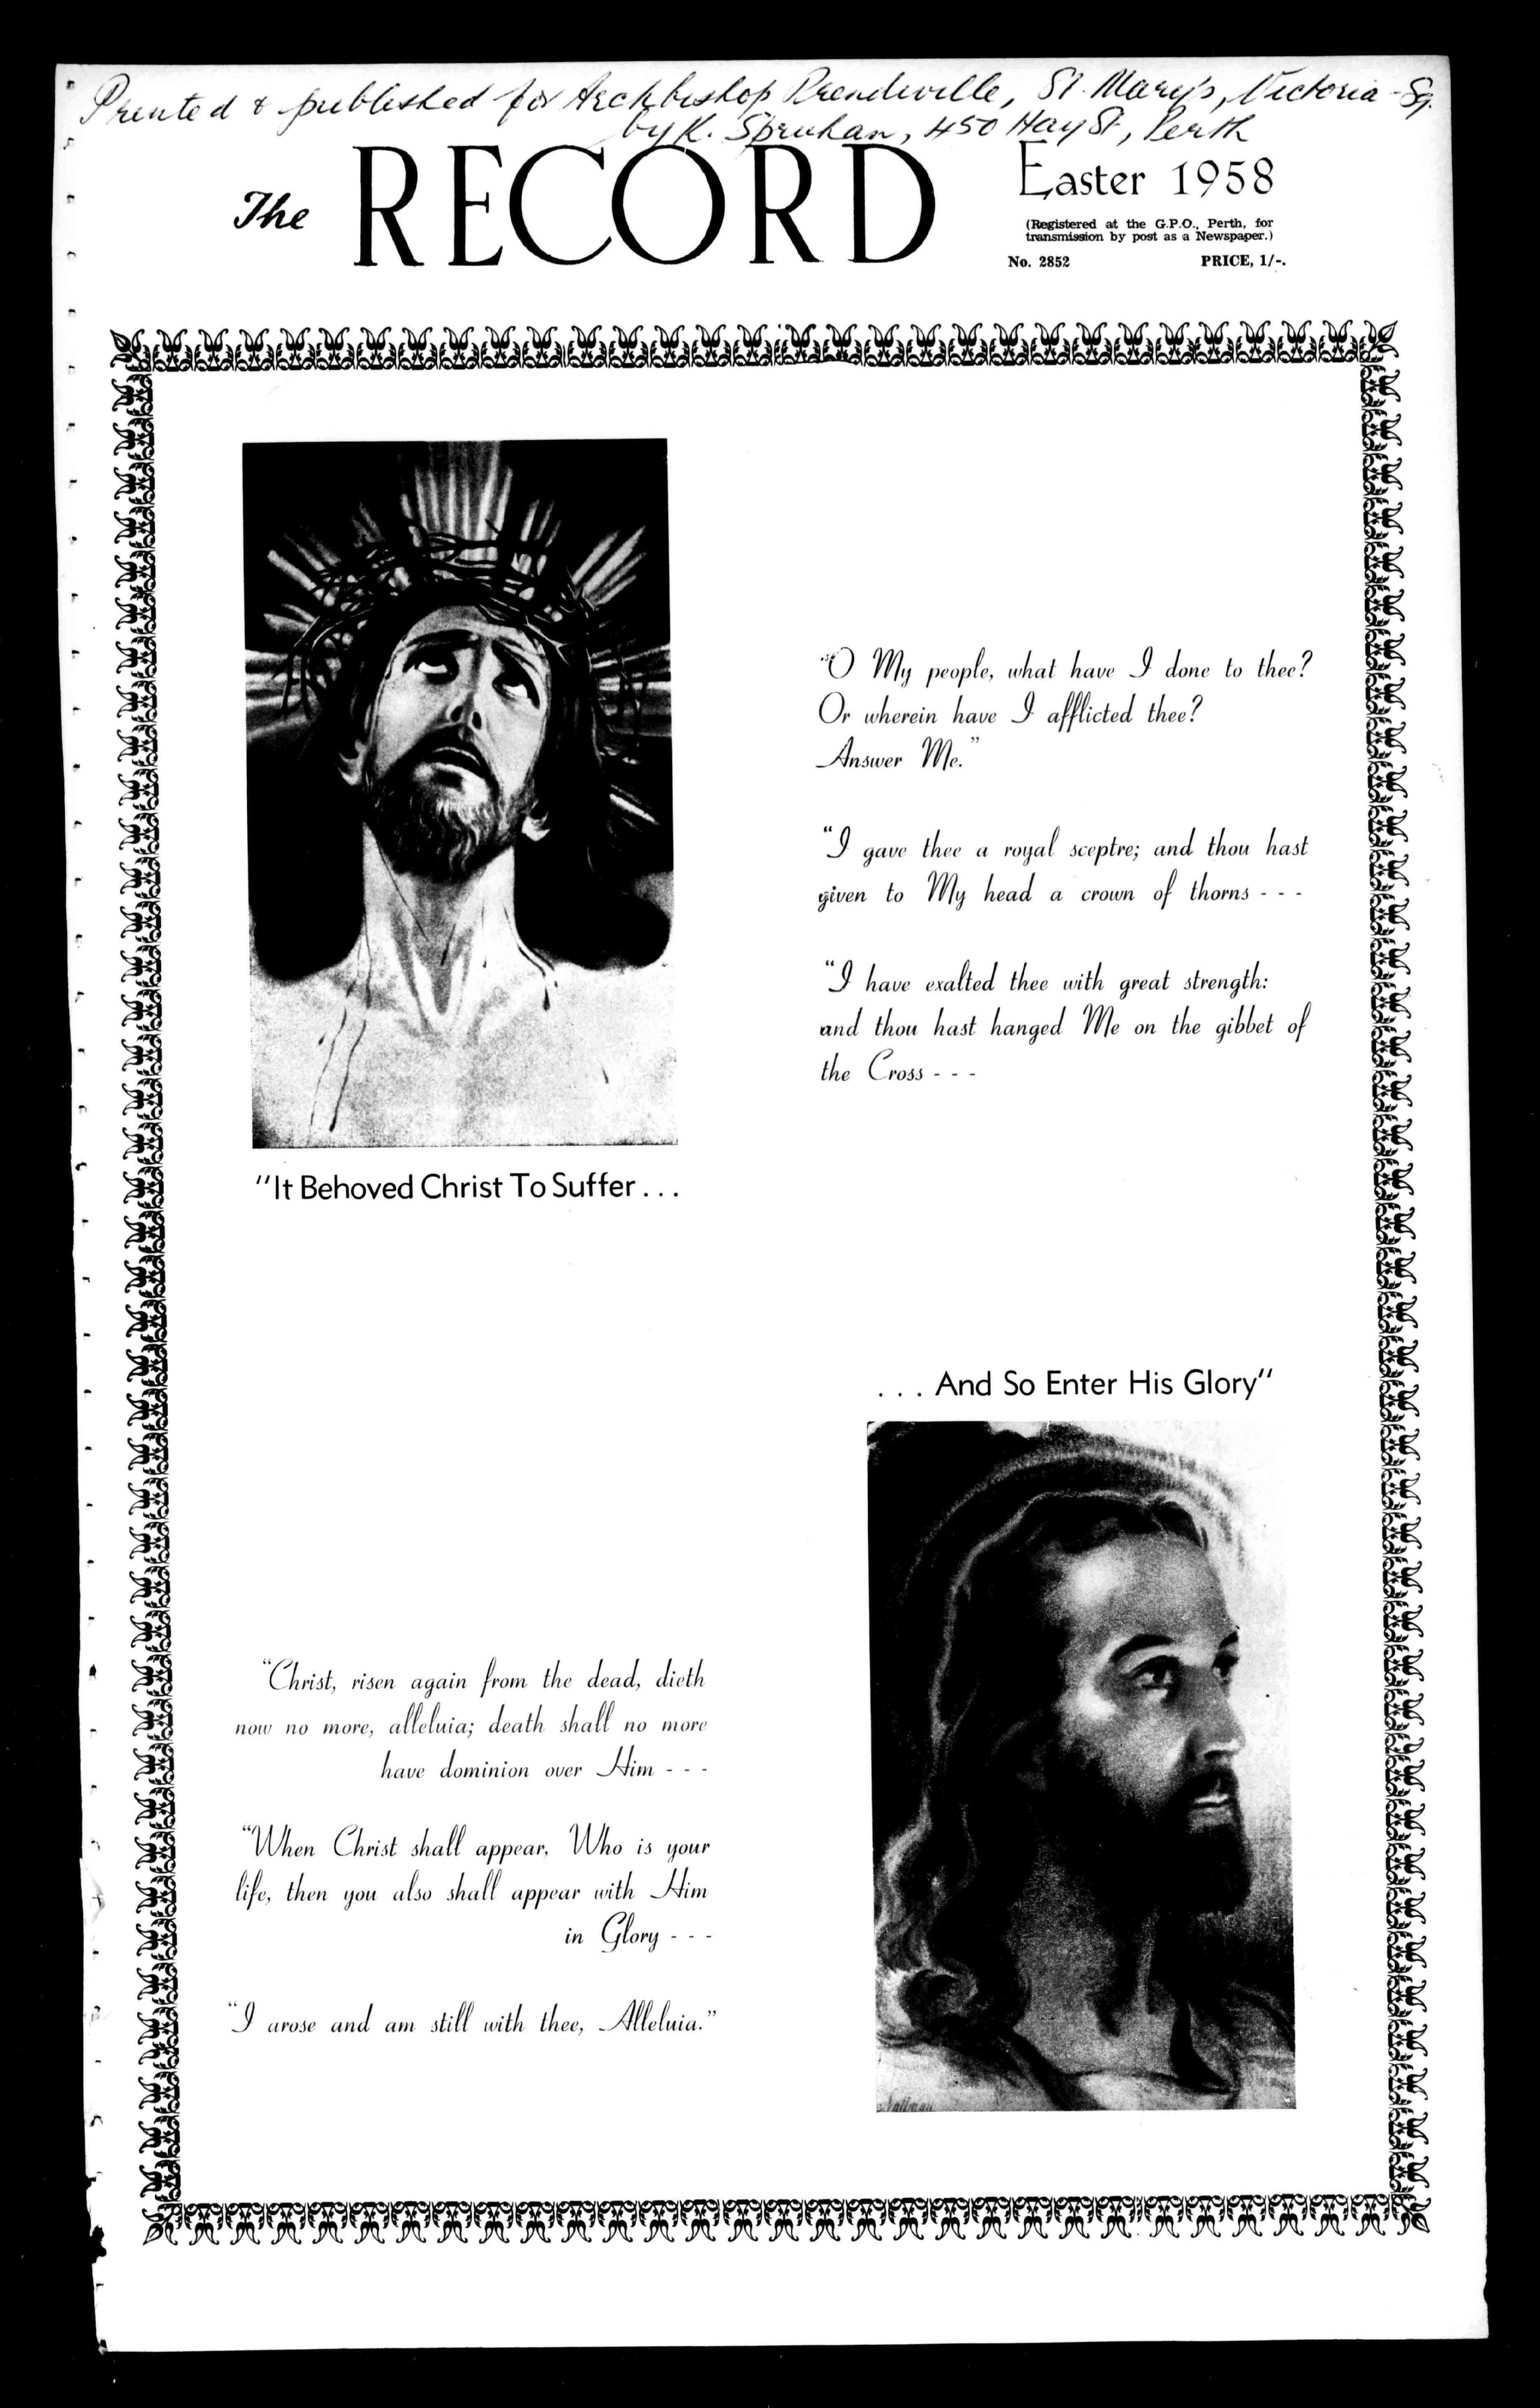 Printed & published for Archbishop Prendiville, St. Mary's, Victoria - Sq.
by K. Spruhan, 450 Hay St, Perth
The RECORD
Easter 1958
(Registered at the G.P.O., Perth, for
transmission by post as a Newspaper.)
No. 2852 PRICE, 1/-.
"O My people, what have I done to thee?
Or wherein have I afflicted thee?
Answer Me."
"I gave thee a royal sceptre; and thou hast
given to My head a crown of thorns - - -
"I have exalted thee with great strength:
and thou hast hanged Me on the gibbet of
the Cross - - -
"It Behoved Christ To Suffer . . .
. . . And So Enter His Glory"
"Christ, risen again from the dead, dieth
now no more, alleluia; death shall no more
have dominion over Him - - -
"When Christ shall appear, Who is your
life, then you also shall appear with Him
in Glory - - -
"I arose and am still with thee, Alleluia."
Sallman